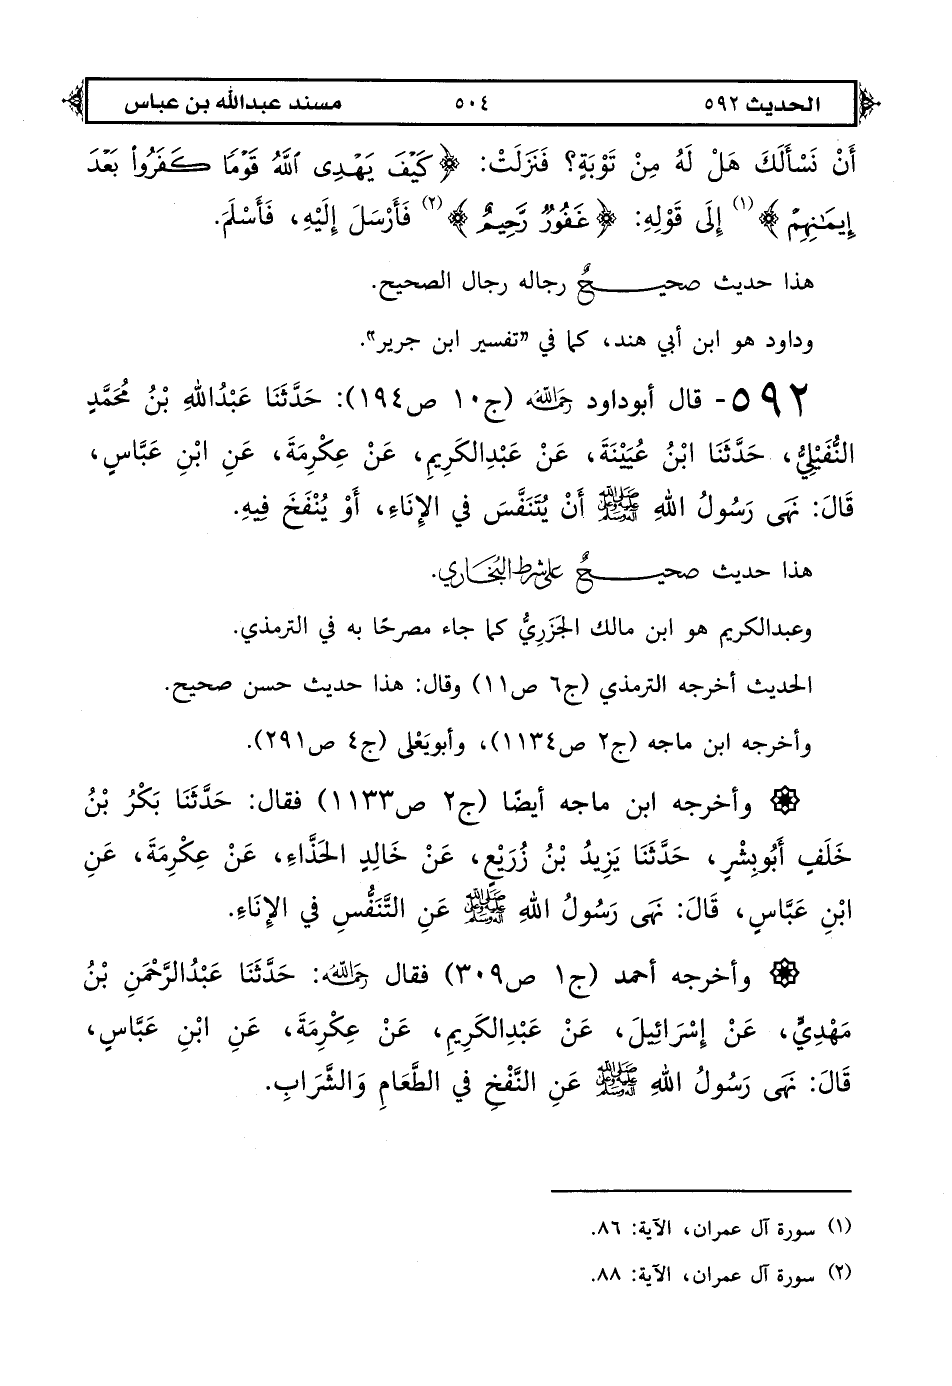 الحديث ٥٩٢ ٥٠٤ مسند عبدالله بن عباس
أَنْ نَسْأَلَكَ هَلْ لَهُ مِنْ تَوْبَةٍ؟ فَنَزَلَتْ: ﴿كَيْفَ يَهْدِى ٱللَّهُ قَوْمًا كَفَرُوا۟ بَعْدَ
إِيمَٰنِهِمْ﴾(١) إِلَى قَوْلِهِ: ﴿غَفُورٌ رَّحِيمٌ﴾(٢) فَأَرْسَلَ إِلَيْهِ، فَأَسْلَمَ.
هذا حديث صحيـــحٌ رجاله رجال الصحيح.
وداود هو ابن أبي هند، كما في "تفسير ابن جرير".
٥٩٢- قال أبوداود رَحِمَهُ اللَّهُ (ج١٠ ص١٩٤): حَدَّثَنَا عَبْدُاللهِ بْنُ مُحَمَّدٍ
النُّفَيْلِيُّ، حَدَّثَنَا ابْنُ عُيَيْنَةَ، عَنْ عَبْدِالكَرِيمِ، عَنْ عِكْرِمَةَ، عَنِ ابْنِ عَبَّاسٍ،
قَالَ: نَهَى رَسُولُ اللهِ ﷺ أَنْ يُتَنَفَّسَ فِي الإِنَاءِ، أَوْ يُنْفَخَ فِيهِ.
هذا حديث صحيـــحٌ على شرط البُخَاري.
وعبدالكريم هو ابن مالك الجَزَرِيُّ كما جاء مصرحًا به في الترمذي.
الحديث أخرجه الترمذي (ج٦ ص١١) وقال: هذا حديث حسن صحيح.
وأخرجه ابن ماجه (ج٢ ص١١٣٤)، وأبويَعْلى (ج٤ ص٢٩١).
۞ وأخرجه ابن ماجه أيضًا (ج٢ ص١١٣٣) فقال: حَدَّثَنَا بَكْرُ بْنُ
خَلَفٍ أَبُوبِشْرٍ، حَدَّثَنَا يَزِيدُ بْنُ زُرَيْعٍ، عَنْ خَالِدٍ الحَذَّاءِ، عَنْ عِكْرِمَةَ، عَنِ
ابْنِ عَبَّاسٍ، قَالَ: نَهَى رَسُولُ اللهِ ﷺ عَنِ التَّنَفُّسِ فِي الإِنَاءِ.
۞ وأخرجه أحمد (ج١ ص٣٠٩) فقال رَحِمَهُ اللَّهُ: حَدَّثَنَا عَبْدُالرَّحْمَنِ بْنُ
مَهْدِيٍّ، عَنْ إِسْرَائِيلَ، عَنْ عَبْدِالكَرِيمِ، عَنْ عِكْرِمَةَ، عَنِ ابْنِ عَبَّاسٍ،
قَالَ: نَهَى رَسُولُ اللهِ ﷺ عَنِ النَّفْخِ فِي الطَّعَامِ وَالشَّرَابِ.
(١) سورة آل عمران، الآية: ٨٦.
(٢) سورة آل عمران، الآية: ٨٨.